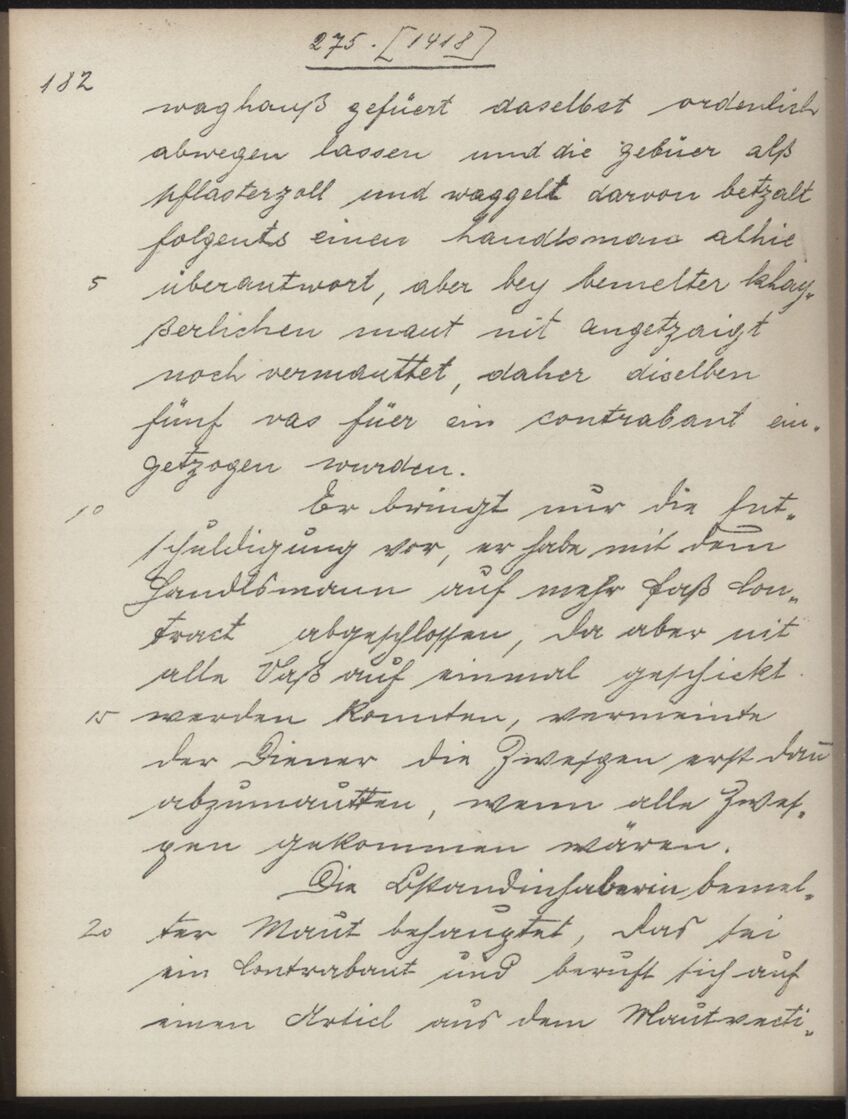 275. [1418]
182
waghauß gefüert daselbst ordenlich
abwegen lassen und die gebüer alß
pflasterzoll und waggelt darvon betzalt
folgents einen handlsman alhie
5 überantwort, aber bey bemelter khay-
ßerlichen maut nit angetzaigt
noch vermauttet, daher diselben
fünf vas füer ein contrabant ein-
getzogen wurden.
10 Er bringt nur die Ent-
schuldigung vor, er habe mit dem
Handlsmann auf mehr faß Con-
tract abgeschlossen, da aber nit
alle Vaß auf einmal geschickt
15 werden konnten, vermeinte
der Diener die Zwespen erst dan̄
abzumautten, wenn alle Zwes-
pen gekommen wären.
Die Bstandinhaberin bemel-
20 ter Maut behauptet, das sei
ein Contrabant und beruft sich auf
einen Articl aus dem Mautvecti-